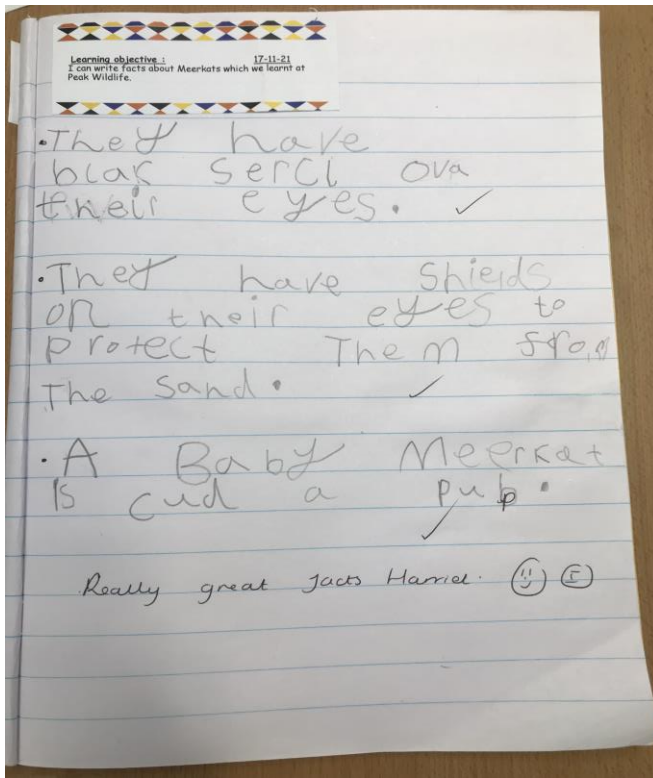 Learning objective : 17-11-21
I can write facts about Meerkats which we learnt at
Peak Wildlife.
• They have
blak sercl ova
their eyes.
• They have Shields
on their eyes to
protect Them from
The sand.
• A Baby Meerkat
Is cud a pup.
Really great facts Harriet. I